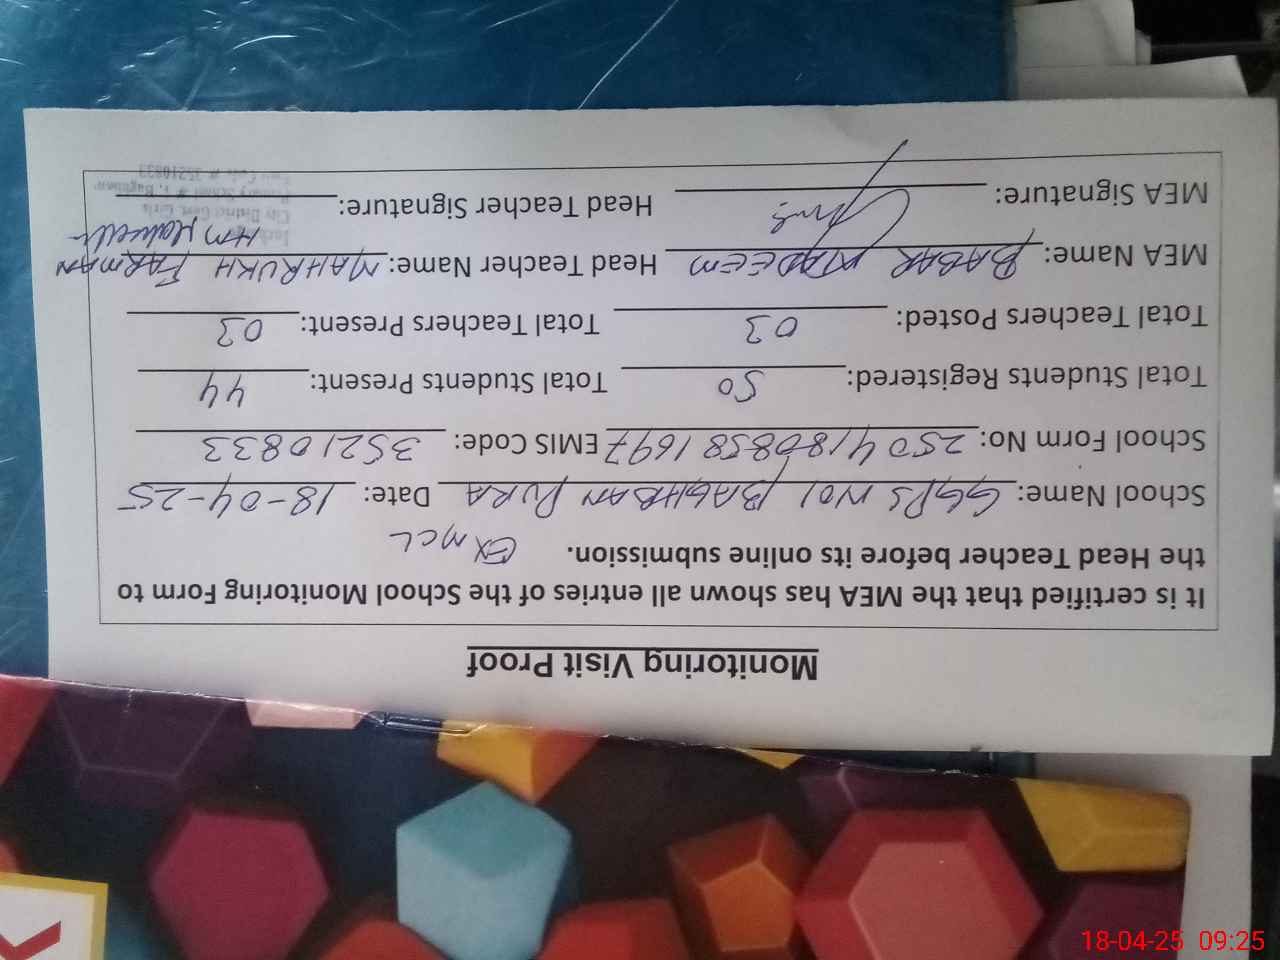 Monitoring Visit Proof
It is certified that the MEA has shown all entries of the School Monitoring Form to
the Head Teacher before its online submission. Ex MCL
School Name: GGPS NO1 BAGHBAN PURA Date: 18-04-25
School Form No: 250418085816 97 EMIS Code: 35210833
Total Students Registered: 50 Total Students Present: 44
Total Teachers Posted: 03 Total Teachers Present: 03
MEA Name: BABAR NADEEM Head Teacher Name: MAHRUKH FARMAN
MEA Signature: Head Teacher Signature:
HM
City District Govt. Girls
Primary School # 1, Baghban
Code # 35210833
18-04-25 09:25